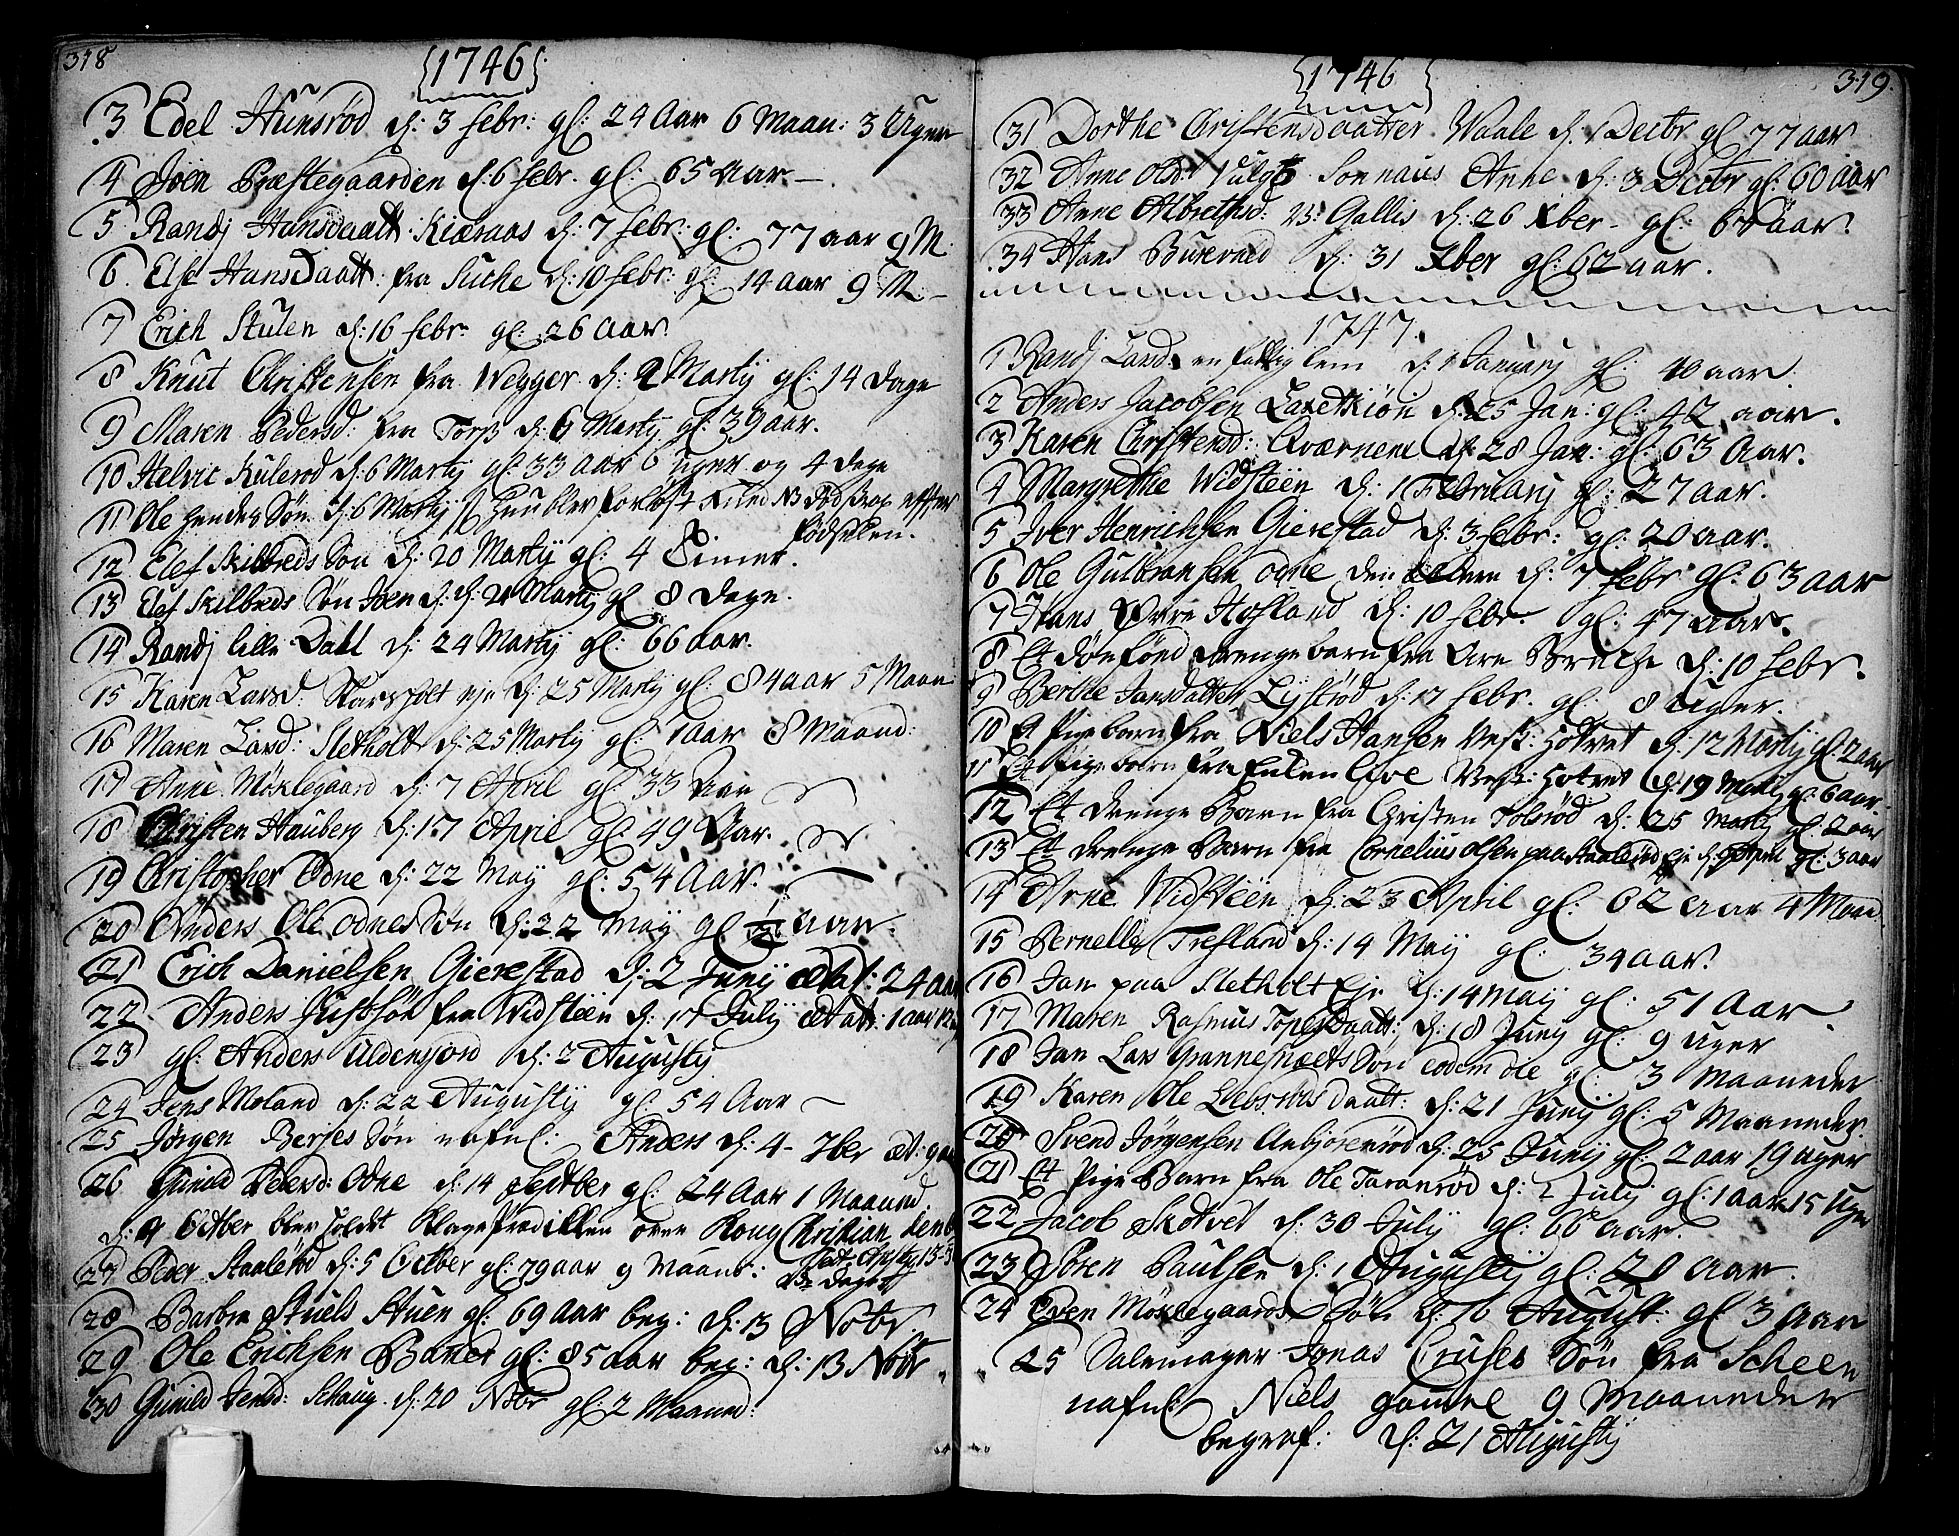 318
1746
3 Edel Hunsrød d: 3 febr: gl: 24 Aar 6 Maan: 3 Uger
4 Joen Præstegaarden d: 6 febr. gl: 65 Aar
5 Randj Hansdaatt: Kiæraas d: 7 febr: gl: 77 aar 9 M:
6 Else Hansdaatt: fra d: 10 febr: gl: 14 aar 9 M:
7 Erich Stulen d: 16 febr: gl: 26 aar.
8 Knut Christensen fra Wegger d: 2 Martij gl: 14 Dage
9 Maren Pedersd: fra Torp d: 6 Martij gl: 39 aar.
10 Helvic Kulerød d: 6 Martij gl: 33 aar 6 uger og 4 dage
11 Ole hendes Søn d: 6 Martij hun blev forløst Kuns NB død strax effter
fødselen.
12 Elef Skilbreds Søn d: 20 Martij gl: 4 Timer.
13 Elef Skilbreds Søn Joen d: d: 21 Martij gl 8 dage.
14 Randj lille Dahl d: 24 Martij gl: 66 aar.
15 Karen Larsd: Skarsholt eje d: 25 Martij gl: 84 aar 5 Maan:
16 Maren Larsd: Sletholt d: 25 Martij gl: 1 aar 8 Maaned:
17 Anne Møklegaard d: 7 April gl: 33 Aar
18 Christen Hauberg d: 17 April gl: 49 Aar.
19 Christopher Odne d: 22 May gl: 54 Aar.
20 Anders Ole Odnes Søn d: 22 May gl 1/2 aar.
21 Erich Danielsen Gierestad d: 2 Junij ætat: 24 aar
22 Anders Justsøn fra Widsteen d: 17 Julij ætatt: 1 aar 12
23 gl: Anders Uldensjord d: 2 Augustij
24 Jens Moland d: 22 Augustij gl 54 Aar
25 Jørgen Berjes Søn nafnl: Anders d: 4 7ber æt: 9
26 Gunild Pedersd: Odne d: 14 Septber gl: 24 Aar 1 Maaned
d: 9 Octber blev holdt Klageprædicken over Kong Christian den 6
27 Peer Staalerød d: 5 Octber gl: 79 aar 9 Maan:
28 Barbra Stuels Stuen gl: 69 Aar beg: d: 13 Novbr.
29 Ole Erichsen Baner gl: 85 aar beg: d: 13 Novbr
30 Gunild Jensd: Schaug d: 20 Novbr gl: 2 Maaned:
1746
319
31 Dorthe Christensdaatter Waale d: 1 Decbr gl 77 aar
32 Anne Olds: Vulgt Sonnaus Anne d: 3 Decbr gl: 60 aar
33 Anne Albrethsd: V: Gallis d: 26 Xber gl: 67 aar.
34 Hans Burevald d: 31 Xber gl: 62 aar.
1747.
1 Randj Larsd: en fattig lem d: 1 Januarij gl: 40 aar.
2 Anders Jacobsen Laxetkiøn d: 25 Jan: gl: 42 aar.
3 Karen Christensd: Qværnene d: 28 Jan: gl: 63 Aar.
4 Margrethe Widsteen d: 1 Februarij gl: 27 aar.
5 Iver Henrichsen Gierestad d: 3 febr: gl: 20 aar.
6 Ole Gulbransen Odne den ældre d: 7 febr gl: 63 aar
7 Hans Øvre Hofland d: 10 febr. gl: 47 aar.
8 Et dønfønd drengebarn fra Are Bruche d: 10 febr.
9 Berthe Jansdatter Lystød d: 17 febr. gl: 8 uger.
10 Et Pigebarn fra Niels Hansen Vest: Hotvet d: 12 Martij gl: 2 aar
11 Et Pigebarn fra Enken Live Vest: Hotvet d: 19 Martij gl: 6 aar
12 Et drenge Barn fra Christen Tolsrød d: 25 Martij gl: 2 aar
13 Et drenge Barn fra Cornelius Olsen paa Staalerød Eje d: 9 April gl: 3 aar
14 Arne Widsteen d: 23 April gl: 62 aar 4 Maan
15 Pernelle Trefland d: 14 May gl: 34 aar.
16 Jan paa Sletholt Eje d: 14 Maij gl: 51 Aar.
17 Maren Rasmus Topesdaatt: d: 18 Junij gl: 9 uger
18 Jan Lars Grannesnæts Søn eodem die gl: 3 Maaneder
19 Karen Ole daatt: d: 21 Junij gl: 5 Maaneder.
20 Svend Jørgensen Anbjørnrød d: 25 Junij gl: 2 aar 19 uger
21 Et Pige Barn fra Ole Taranrød d: 2 Julij gl: 1 aar 15 Uger
22 Jacob Skotvet d: 30 Julij gl: 66 aar.
23 Søren Paulsen d: 1 Augustij gl: 20 aar.
24 Even Møklegaards Søn d: 16 August: gl 3 aar
25 Salemager Jonas Cruses Søn fra Scheen
nafnl: Niels gamel 9 Maaneder
begraf: d: 21 Augustij